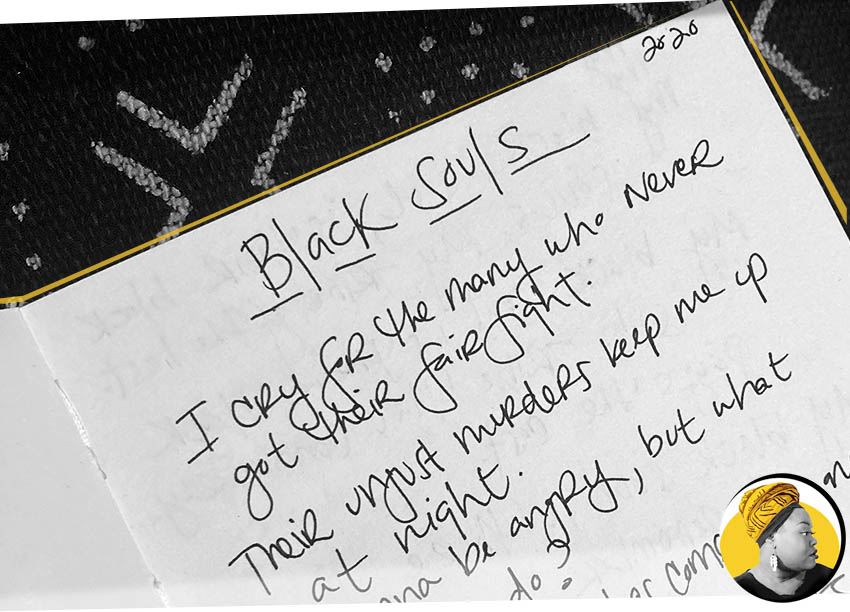 2020
Black Souls
I cry for the many who never
got their fair fight.
Their unjust murders keep me up
at night.
nna be angry, but what
do?